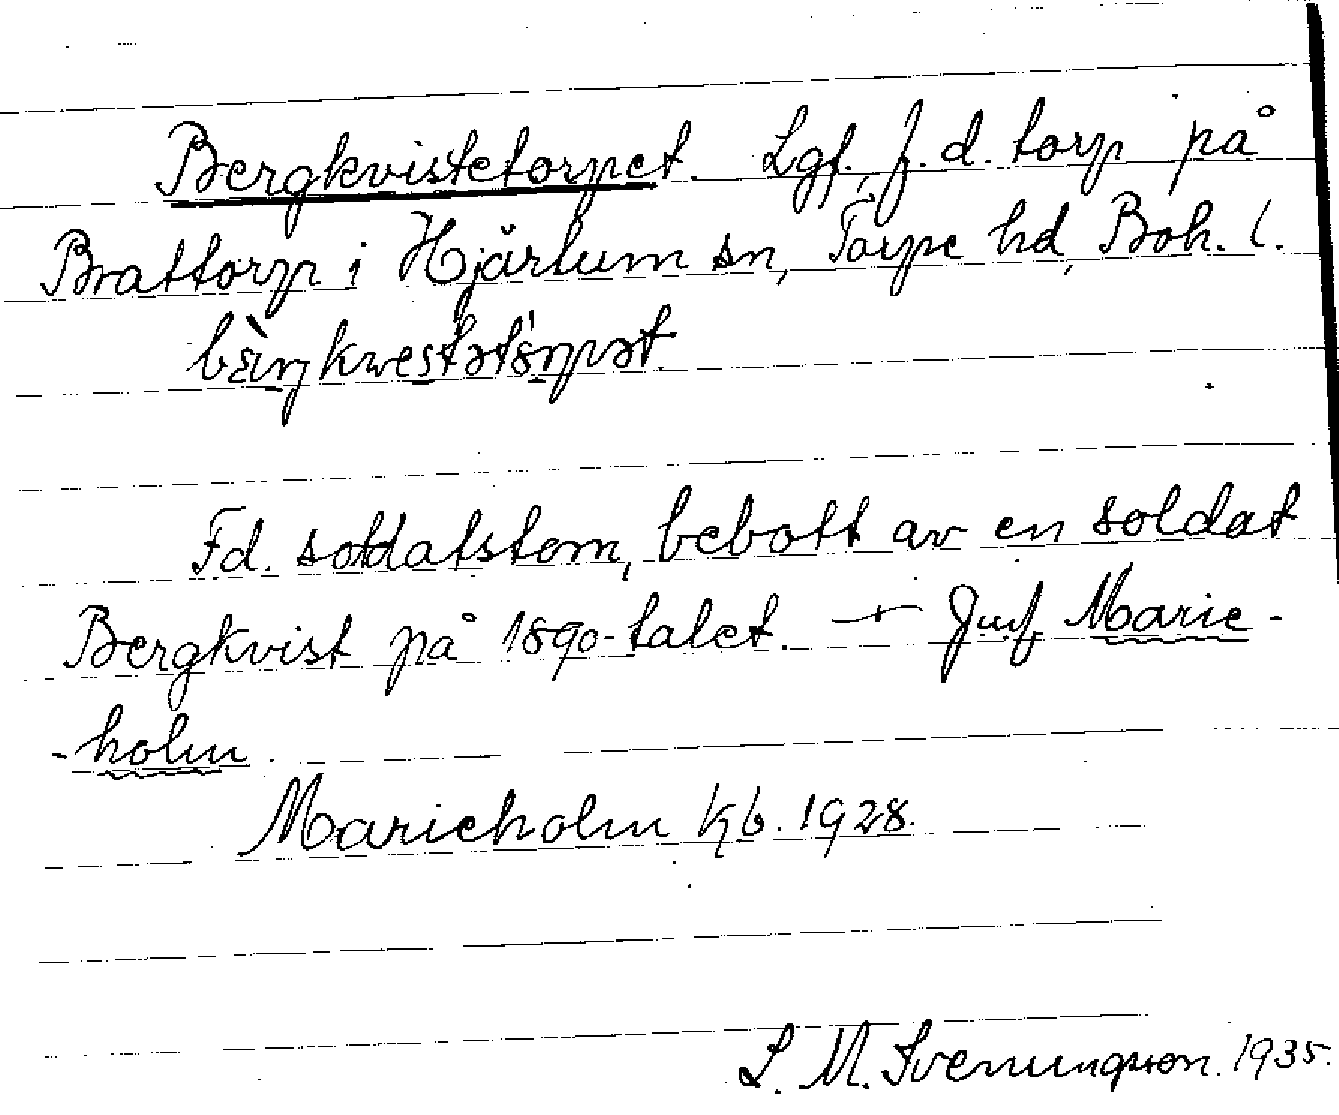 Bergkvistetorpet. Lgf., f.d. torp på
Brattorp i Hjärtum sn, Torpe hd, Boh. l.
Fd. soldatstom, bebott av en soldat
Bergkvist på 1890-talet. — Jmf Marie-
-holm.
Marieholm kb. 1928.
S. M. Svenungsson. 1935.